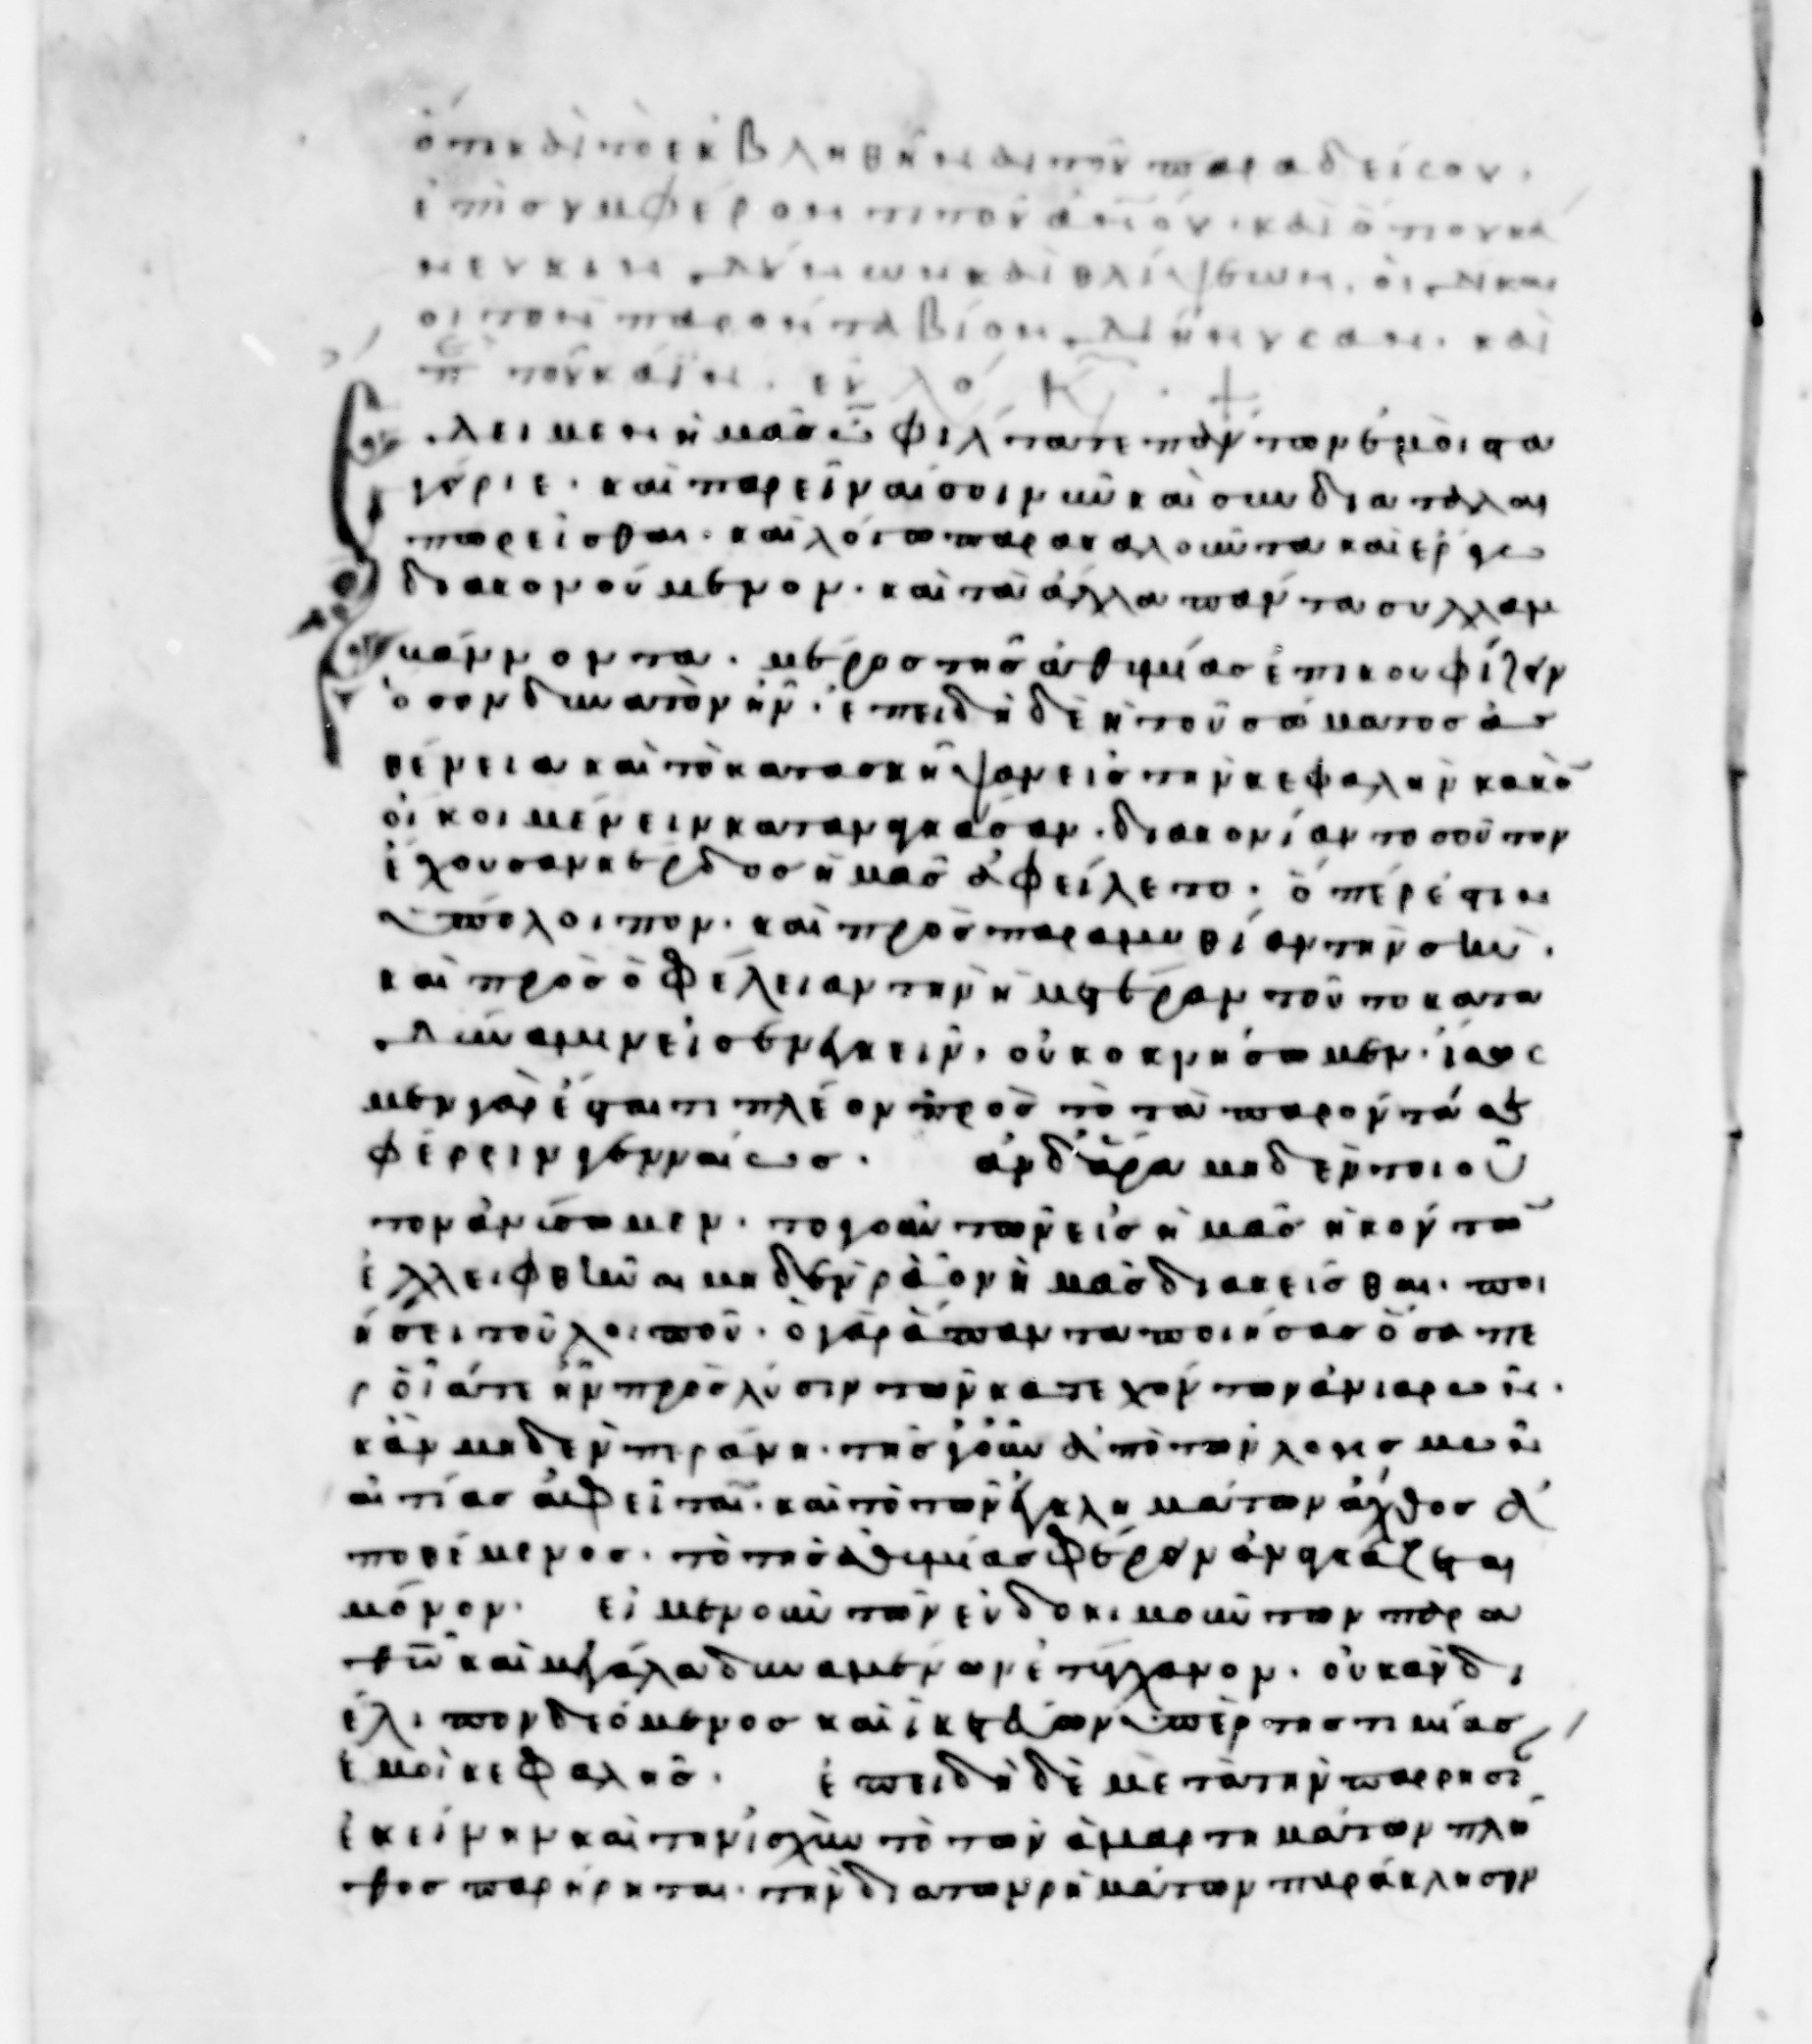 ὅτι καὶ τὸ ἐκβληθῆναι τοῦ παραδείσου,
ἐπὶ συμφέροντι τοῦ ἀν͞ου· καὶ ὅτι οὐκ ἀ
νευ κινδύνων καὶ θλίψεων, οἱ δίκαι
οι τὸν παρόντα βίον διήνυσαν· καὶ
π τοῦ κάϊν. εὐ λό Κ · +
Ἔδει μὲν ἡμᾶς ὦ φίλτατε πάντων ἐμοὶ στα
γείριε· καὶ παρεῖναί σοι νῦν καὶ συνδιαταλαι
πωρεῖσθαι· καὶ λόγω παρακαλοῦντα καὶ ἔργω
διακονούμενον· καὶ τὰ ἄλλα πάντα συλλαμ
βάνοντα· μέρος τῆς ἀθυμίας ἐπικουφίζειν
ὅσον δυνατὸν ἦν· ἐπειδὴ δὲ ἡ τοῦ σώματος ἀσ
θένεια καὶ τὸ κατασκῆψαν εἰς τὴν κεφαλὴν κακὸν
οἴκοι μένειν καταναγκάσαν· διακονίαν τοσοῦτον
ἔχουσαν κέρδος ἡμᾶς ἀφείλετο· ὅπέρ ἐστιν
ὑπόλοιπον· καὶ πρὸς παραμυθίαν τὴν σὴν·
καὶ πρὸς ὀφέλειαν τὴν ἡμετέραν τοῦτο κατα
δύναμιν εἰσενεγκεῖν, οὐκ ὀκνήσωμεν· ἴσως
μὲν γὰρ ἔσται τι πλέον πρὸς τὸ τὰ παρόντά σε
φέρειν γενναίως· ἀν δ' ἄρα μηδὲν τοιοῦ
τον ἀνύσωμεν· τὸ γοῦν τῶν εἰς ἡμᾶς ἡκόντων
ἐλλειφθῆναι μηδὲν ῥᾶον ἡμᾶς διακεῖσθαι· ποι
ήσει τοῦ λοιποῦ· ὁ γὰρ ἅπαντα ποιήσας ὅσα πε
ρ οἷά τε ἦν πρὸς λύσιν τῶν κατεχόντων ἀνιαρῶν·
κἂν μηδὲν περάνη· τῆς γοῦν ἀπὸ τῶν λογισμῶν
αἰτίας ἀφεῖται· καὶ τὸ τῶν ἐγκλημάτων ἄχθος ἀ
ποθέμενος· τὸ τῆς ἀθυμίας φέρειν ἀναγκάζεται
μόνον· εἰ μὲν οὖν τῶν εὐδοκιμούντων παρα
θῶ καὶ μεγάλα δυναμένων ἐτύγχανον· οὐκ ἂν δι
έλιπον δεόμενος καὶ ἱκετεύων ὑπὲρ τῆς τιμίας
ἐμοὶ κεφαλῆς· ἐπειδὴ δέ με τὰ τὴν παρρησίαν
ἐκείνην καὶ τὴν ἰσχὺν τὸ τῶν ἁμαρτημάτων πλῆ
θος παρήρηται· τὴν διὰ τῶν ῥημάτων παράκλησιν